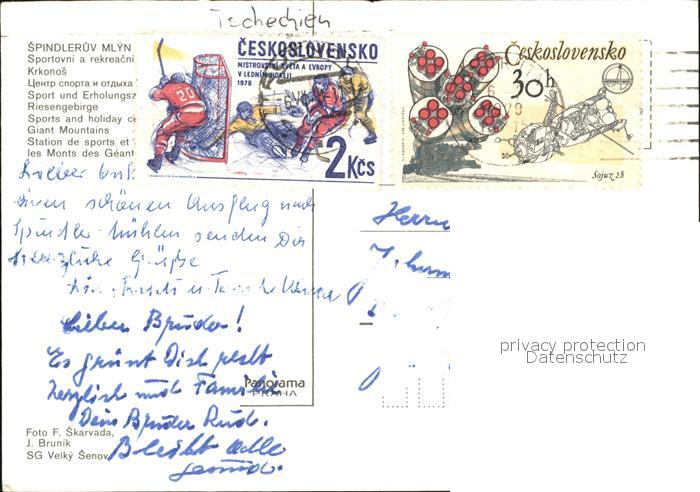 Tschechien
ŠPINDLERŮV MLÝN
Sportovní a rekreační
Krkonoš
Центр спорта и отдыха
Sport und Erholungsz
Riesengebirge
Sports and holiday c
Giant Mountains
Station de sports et
les Monts des Géant
ČESKOSLOVENSKO
MISTROVSTVÍ SVĚTA A EVROPY
V LEDNÍM HOKEJI
1978
20
2 Kčs
Československo
30h
Sojuz 28
Lieber
einen schönen Ausflug nach
Spindlermühlen senden Dir
herzliche Grüße
Lieber Bruder!
Es grüßt Dich recht
herzlich und Familie
Dein Bruder Rud.
Bleibt alle
gesund.
Herrn
Panorama
PRAHA
Foto F. Škarvada,
J. Bruník
SG Velký Šenov
privacy protection
Datenschutz